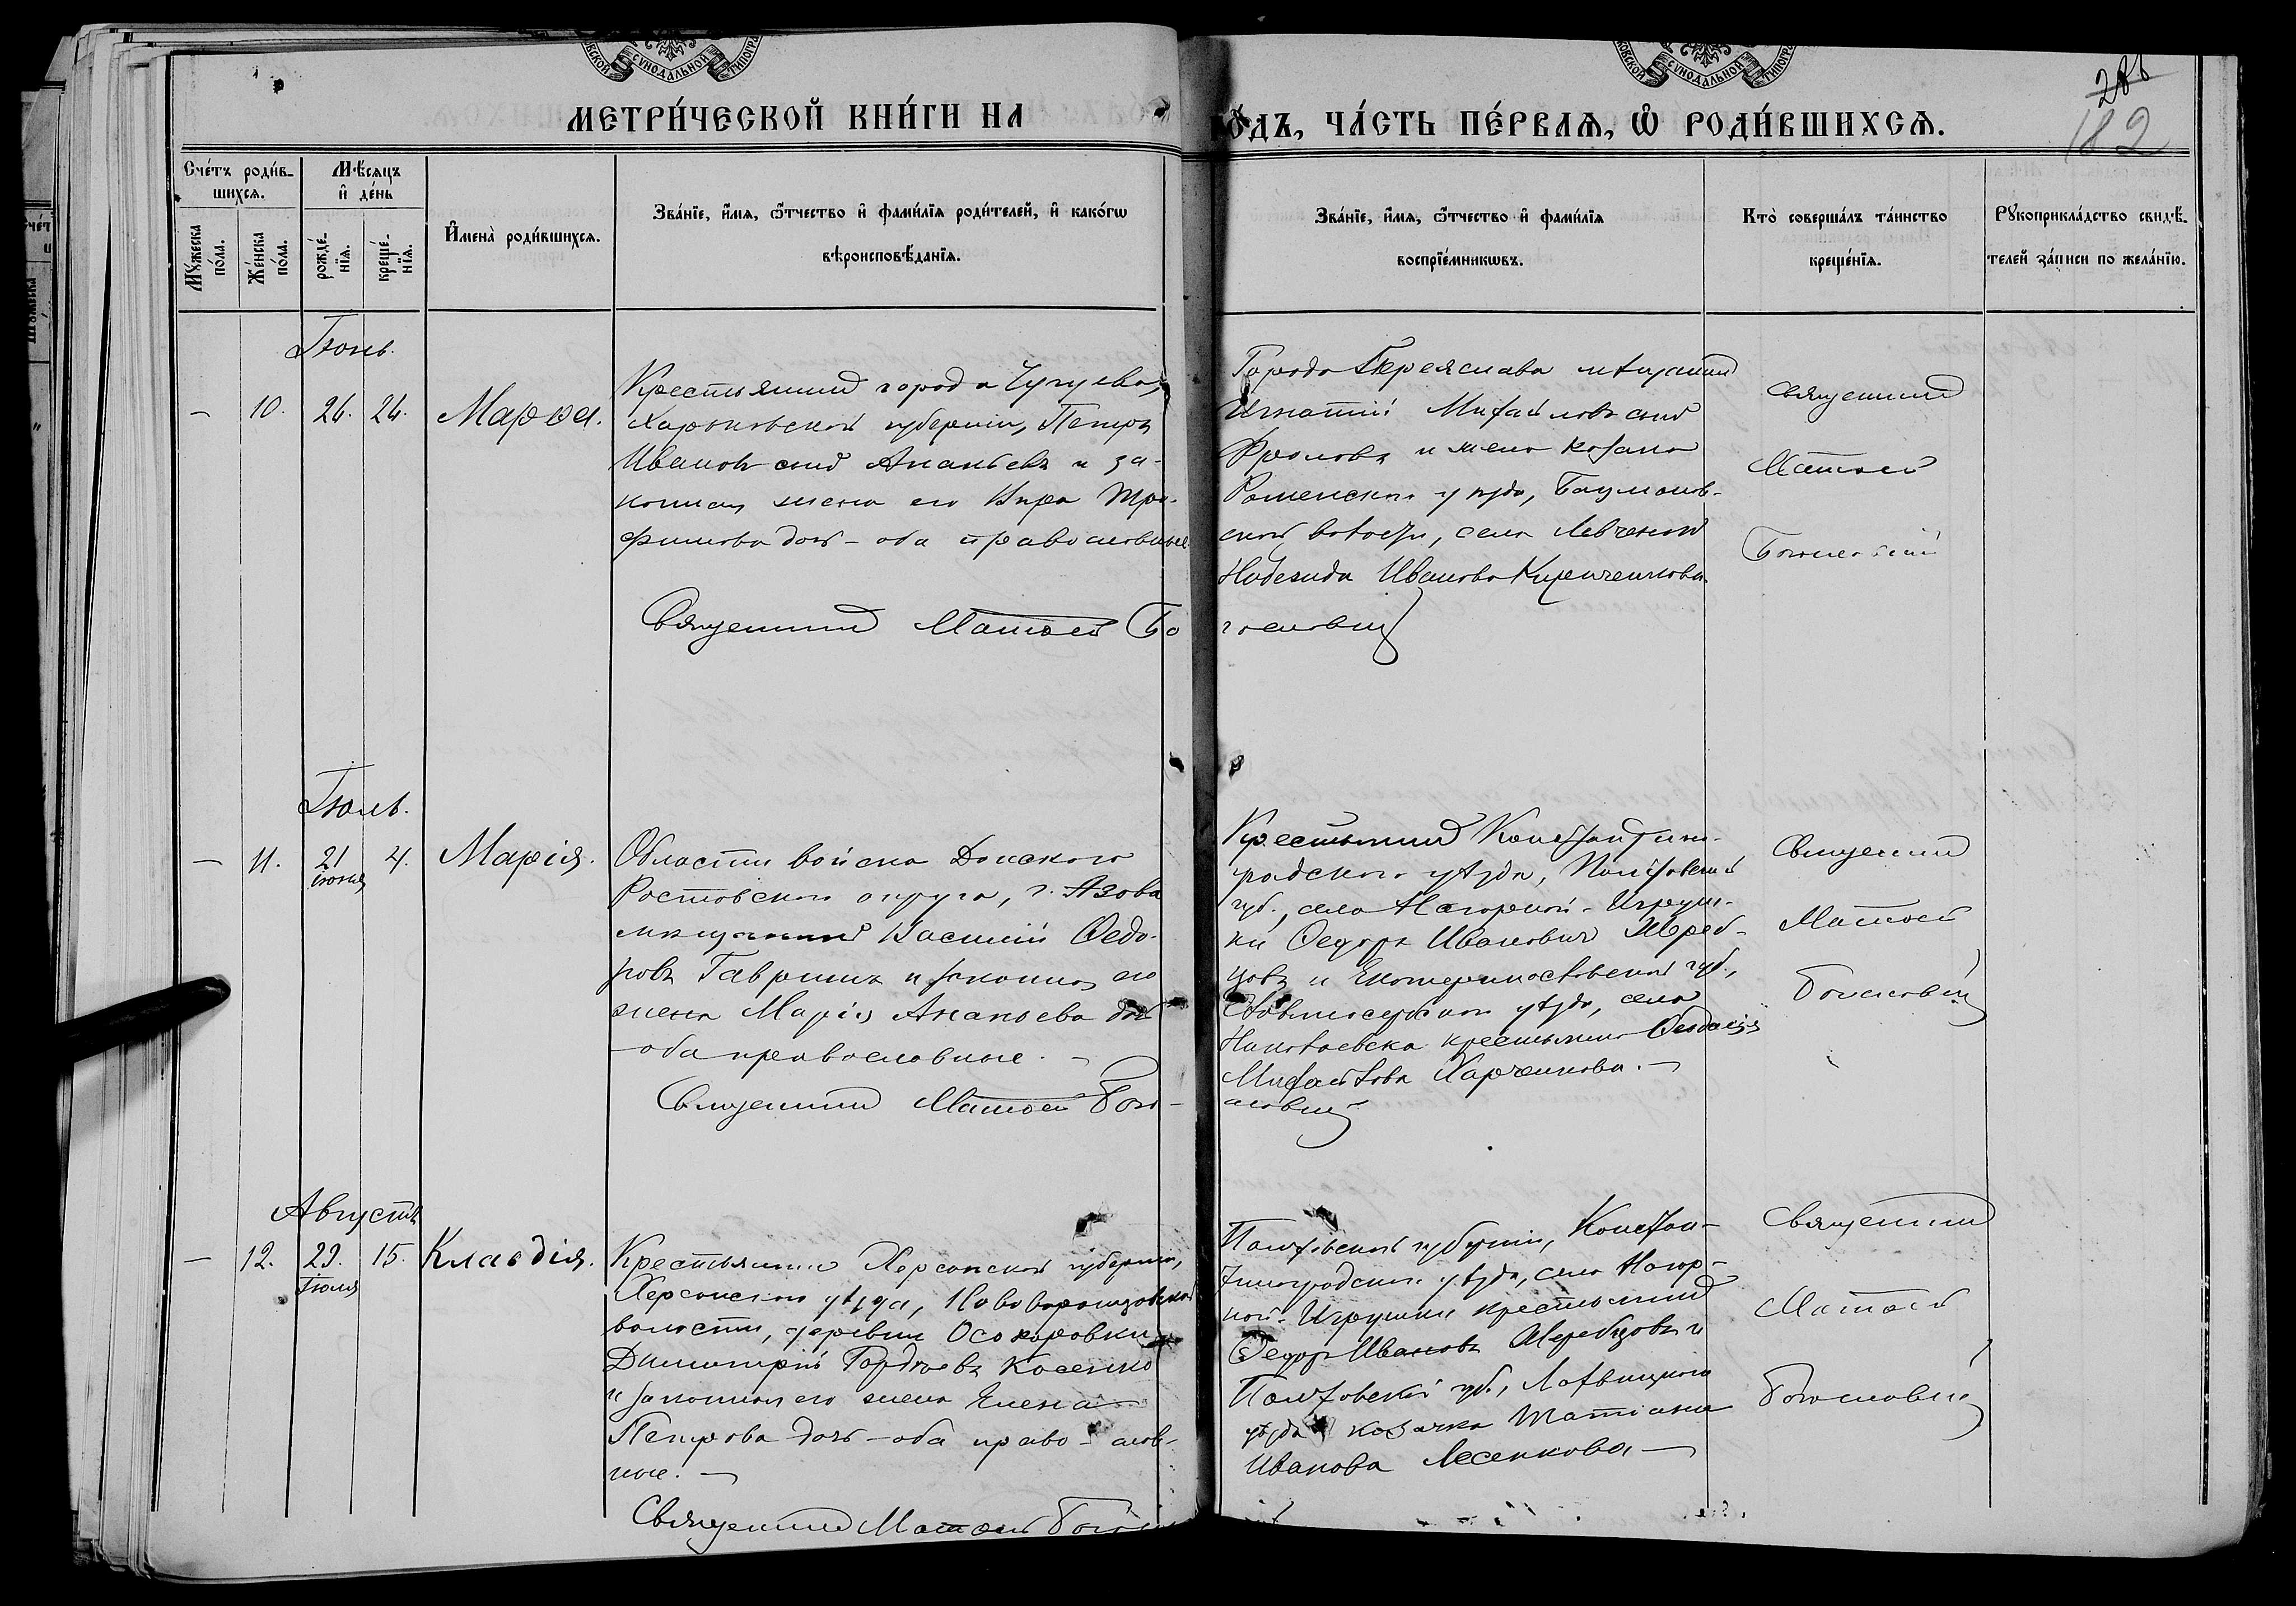 СѴНОДАЛЬНОЙ
СѴНОДАЛЬНОЙ
286
182
МЕТРИ́ЧЕСКОЙ КНИ́ГИ НА
ГО́ДЪ, ЧА́СТЬ ПЕ́РВАЯ, Ѡ РОДИ́ВШИХСЯ.
Сче́тъ роди́в-
шихся.
Мѣ́сяцъ
и де́нь
Му́жеска
по́ла.
Же́нска
по́ла.
рожде́-
нїя.
креще́-
нїя.
Имена̀ роди́вшихся.
Зва́нїе, и́мя, ѻ́тчество и фами́лїя роди́телей, и како́гѡ
вѣроисповѣ́данїя.
Зва́нїе, и́мя, ѻ́тчество и фами́лїя
воспрїе́мникѡвъ.
Кто̀ соверша́лъ та́инство
креще́нїя.
Рꙋкоприкла́дство свидѣ́-
телей за́писи по жела́нїю.
Іюнь.
— 10. 24. Марѳа.
Крестьянинъ города Чугуева,
Харьковской губерніи, Петръ
Ивановъ сынъ Ананьевъ и за-
конная жена его Кира Тро-
фимова дочь – оба православные
Священникъ Матѳей Бо
Города Переяслава мѣщанинъ
Игнатій Михайловъ сынъ
Фроловъ и жена козака
Роменскаго уѣзда,
волости, села
Надежда Иванова
гословскій
Священникъ
Матѳей
Богословскій
Іюль.
— 11. 21 4. Марія.
іюня
Области войска Донского
Ростовского округа, г. Азова
мѣщанинъ Василій Ѳедо-
ровъ Гавришъ и законная его
жена Марія Ананьева дочь
– оба православные. –
Священникъ Матѳей Бого-
Крестьянинъ Константино-
градского уѣзда, Полтавской
губ., села Нагорной-
Ѳедоръ Ивановичъ Жереб-
цовъ и Екатеринославской губ.,
Славяносербскаго уѣзда, села
крестьянка Ѳеодосія
Михайлова Харченкова. –
словскій
Священникъ
Матѳей
Богословскій
Августъ
— 12. 29. 15. Клавдія.
Іюля
Крестьянинъ Херсонской губерніи,
Херсонскаго уѣзда, Нововоронцовской
волости, деревни Осокоровки
Димитрій Гордѣевъ Косенко
и законная его жена Елена
Петрова дочь – оба право-слав-
ные. –
Священникъ Матѳей Бого
Полтавской губерніи, Констан-
тиноградскаго уѣзда, села Нагор-
ной- крестьянинъ
Ѳедоръ Ивановъ Жеребцовъ и
Полтавской губ., Лохвицкаго
уѣзда козачка Татіана
Иванова Лесенкова –
Священникъ
Матѳей
Богословскій